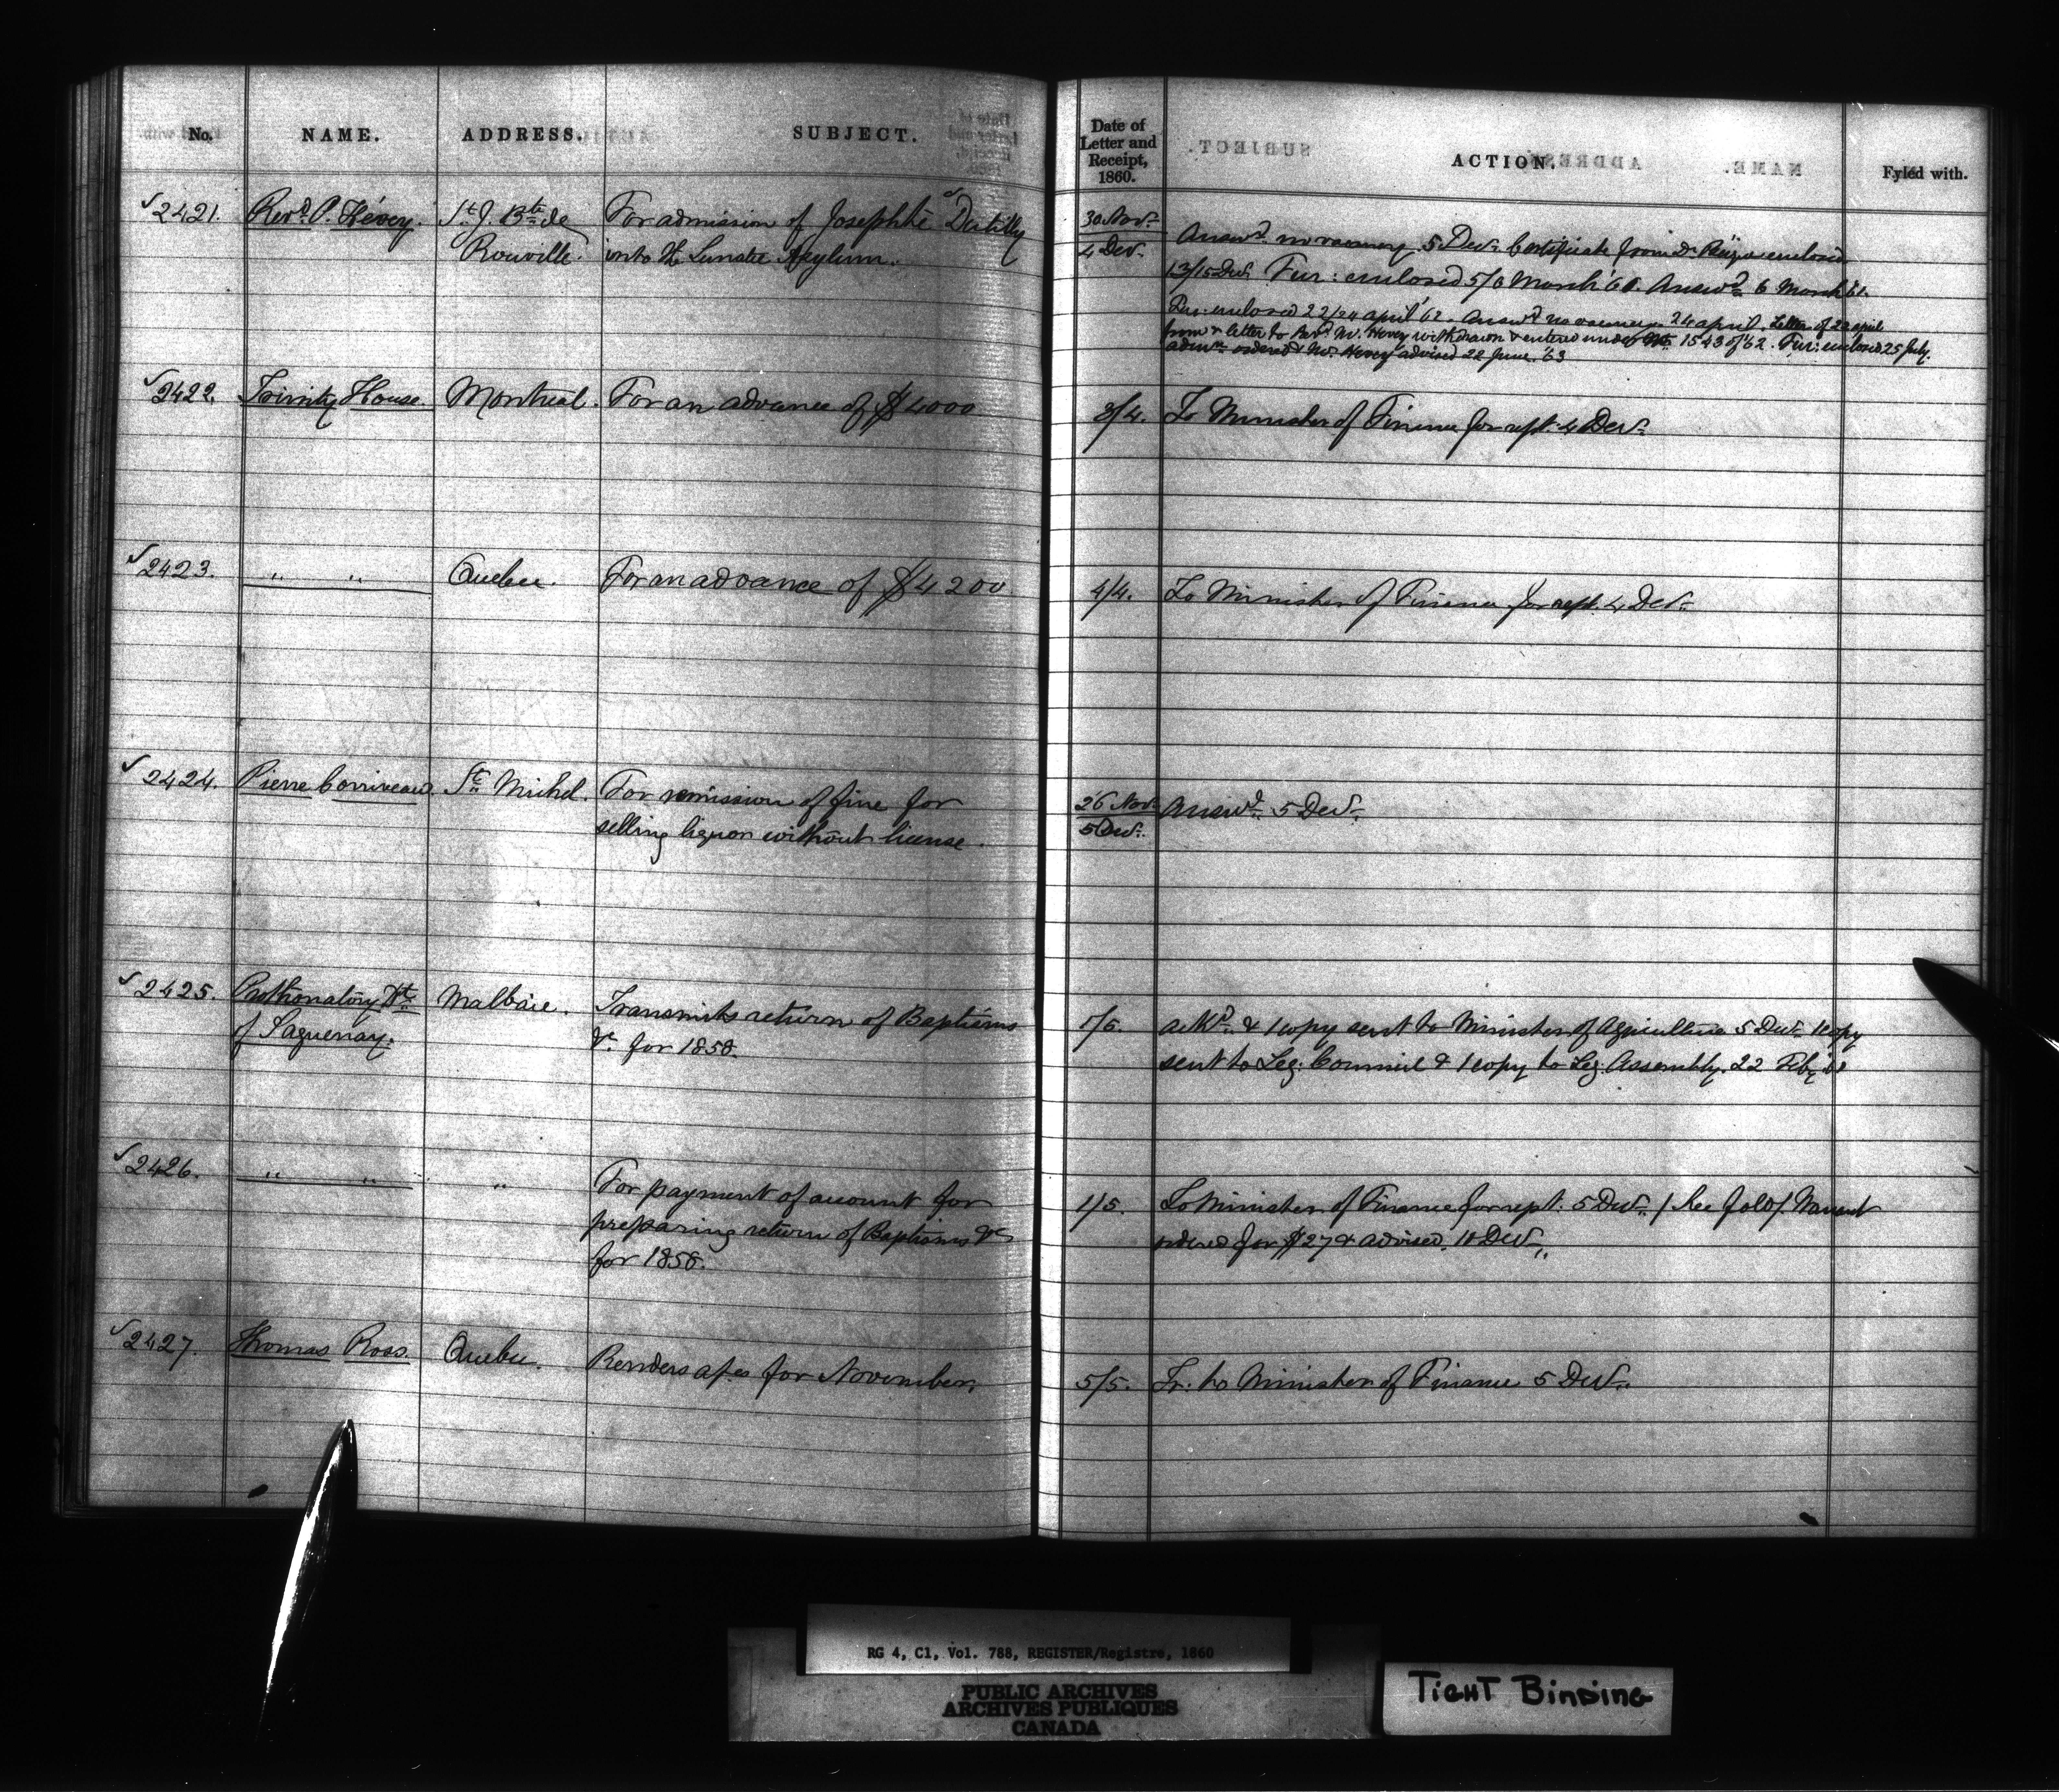 No. NAME. ADDRESS. SUBJECT. Date of Letter and Receipt, 1860. ACTION. Fyled with.
√2421. Revd. P. Hévey. St. J. Bte. de For admission of Josephte Dutilly 30 Nov.
Rouville. into the Lunatic Asylum. 4 Dev. Answd. no vacancy. 5 Dev. Certificate from Dr. enclosed
13/15 Dev. Fur: enclosed 5/6 March '61. Answd. 6 March '61.
Fur: enclosed 22/24 april '62. Answd no vacancy. 24 april. Letter of 22 april
from & letter to Revd. Mr. Hevey withdrawn & entered under No. 1543 of '62. Fur: enclosed 25 July.
admn. ordered & Mr. Hevey advised 22 June '63
√2422. Trinity House. Montreal. For an advance of $4000 3/4. To Minister of Finance for rept. 4 Dev.
√2423. " " Quebec. For an advance of $4200 4/4. To Minister of Finance for rept. 4 Dev.
√2424. Pierre Corriveau. St. Michel. For remission of fine for 26 Nov. Answd. 5 Dev.
selling liquor without license. 5 Dev.
√2425. Prothonotary Dt. Malbaie. Transmits return of Baptisms 1/5. ackd. & 1 copy sent to Minister of Agriculture 5 Dev. 1 copy
of Saguenay. &c. for 1858. sent to Leg: Council & 1 copy to Leg. Assembly. 22 Feby
√2426. " " " For payment of account for 1/5. To Minister of Finance for rept. 5 Dev. / See fold /. Warrant
preparing return of Baptisms &c ordered for $27 & advised. 10 Dev.
for 1858.
√2427. Thomas Ross. Quebec. Renders a/cs for November. 5/5. Tr: to Minister of Finance 5 Dev.
RG 4, C1, Vol. 788, REGISTER/Registre, 1860
PUBLIC ARCHIVES
ARCHIVES PUBLIQUES
CANADA
TIGHT BINDING